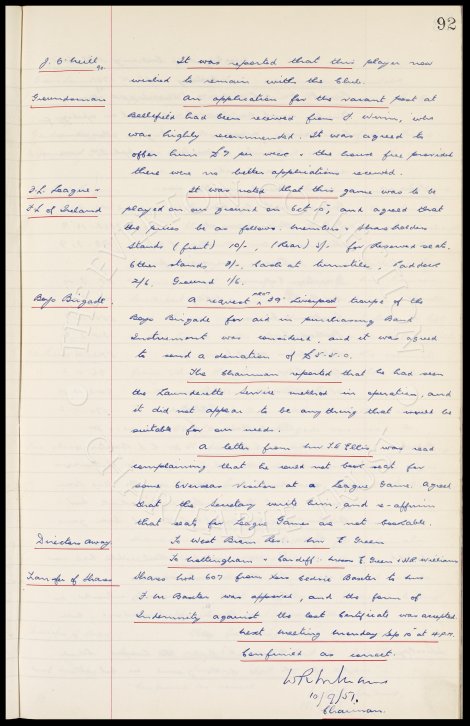 92
J. O'Neill It was reported that this player now
wished to remain with the Club.
Groundsman An application for the vacant post at
Bellefield had been received from J Winn, who
was highly recommended. It was agreed to
offer him £7 per week & the house free provided
there were no better applications received.
F.L. League v It was noted that this game was to be
F.L of Ireland played on our ground on Oct 10, and agreed that
the prices be as follows: members & shareholders
Stands (front) 10/-, (Rear) 5/- for Reserved seats.
Other stands 3/- cash at turnstile, Paddock
2/6, Ground 1/6.
Boys Brigade. A request from 29th Liverpool troupe of the
Boys Brigade for aid in purchasing Band
Instrument was considered, and it was agreed
to send a donation of £5-5-0.
The Chairman reported that he had seen
the Launderette Service method in operation, and
it did not appear to be anything that would be
suitable for our needs.
A letter from Mr T.G Ellis was read
complaining that he could not book seats for
some Overseas visitors at a League Game. Agreed
that the Secretary write him, and re-affirm
that seats for League Games are not bookable.
Directors away To West Brom Res: Mr E Green
To Nottingham & Cardiff: Messrs E. Green & W.R. Williams
Transfer of Shares Shares No 607 from Cedric Baxter to Mr
F. W Baxter was approved, and the form of
Indemnity against the lost Certificate was accepted.
Next meeting Monday Sep 10th at 4 P.M.
Confirmed as correct.
W R Williams
10/9/51.
Chairman.